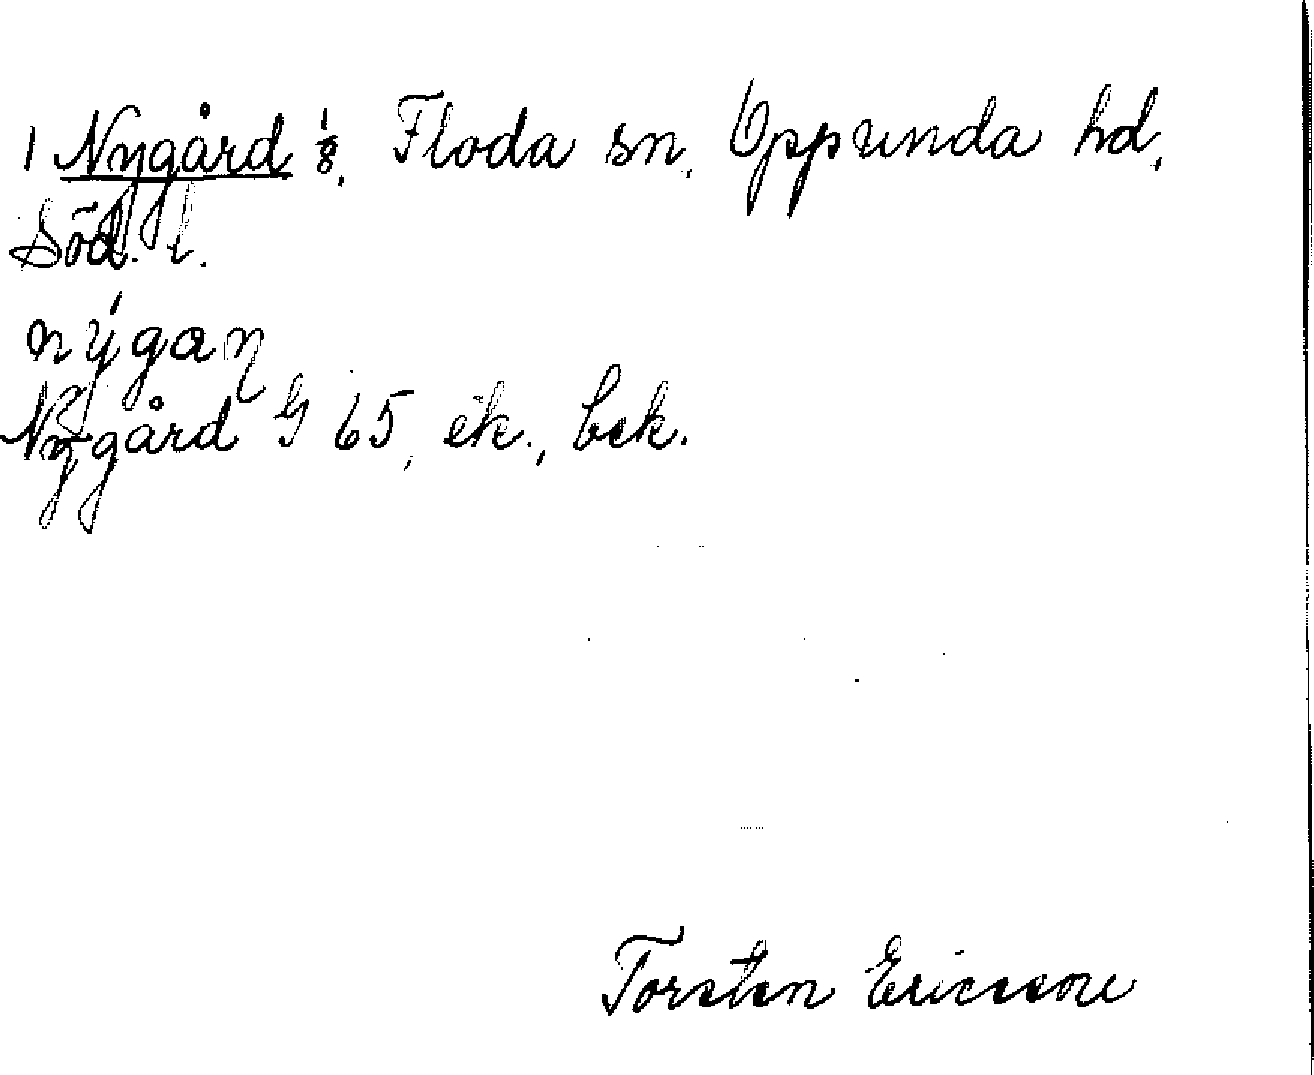 1 Nygård 1/8. Floda sn. Oppunda hd.
Söd. l.
nýgaɳ
Nygård G 65, ek., bek.
Torsten Ericsson